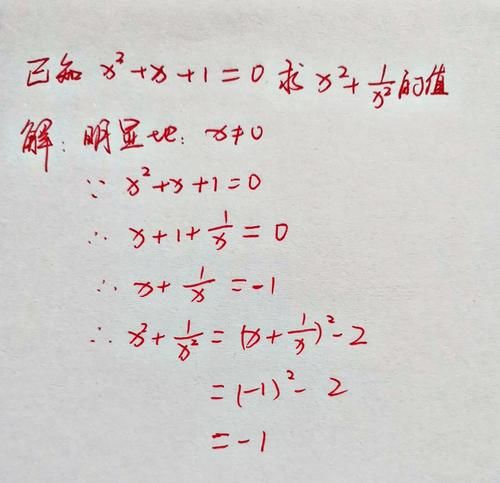 已知 x²+x+1=0 求 x²+1/x² 的值
解：明显地：x≠0
∵ x²+x+1=0
∴ x+1+1/x=0
∴ x+1/x=-1
∴ x²+1/x²=(x+1/x)²-2
=(-1)²-2
=-1